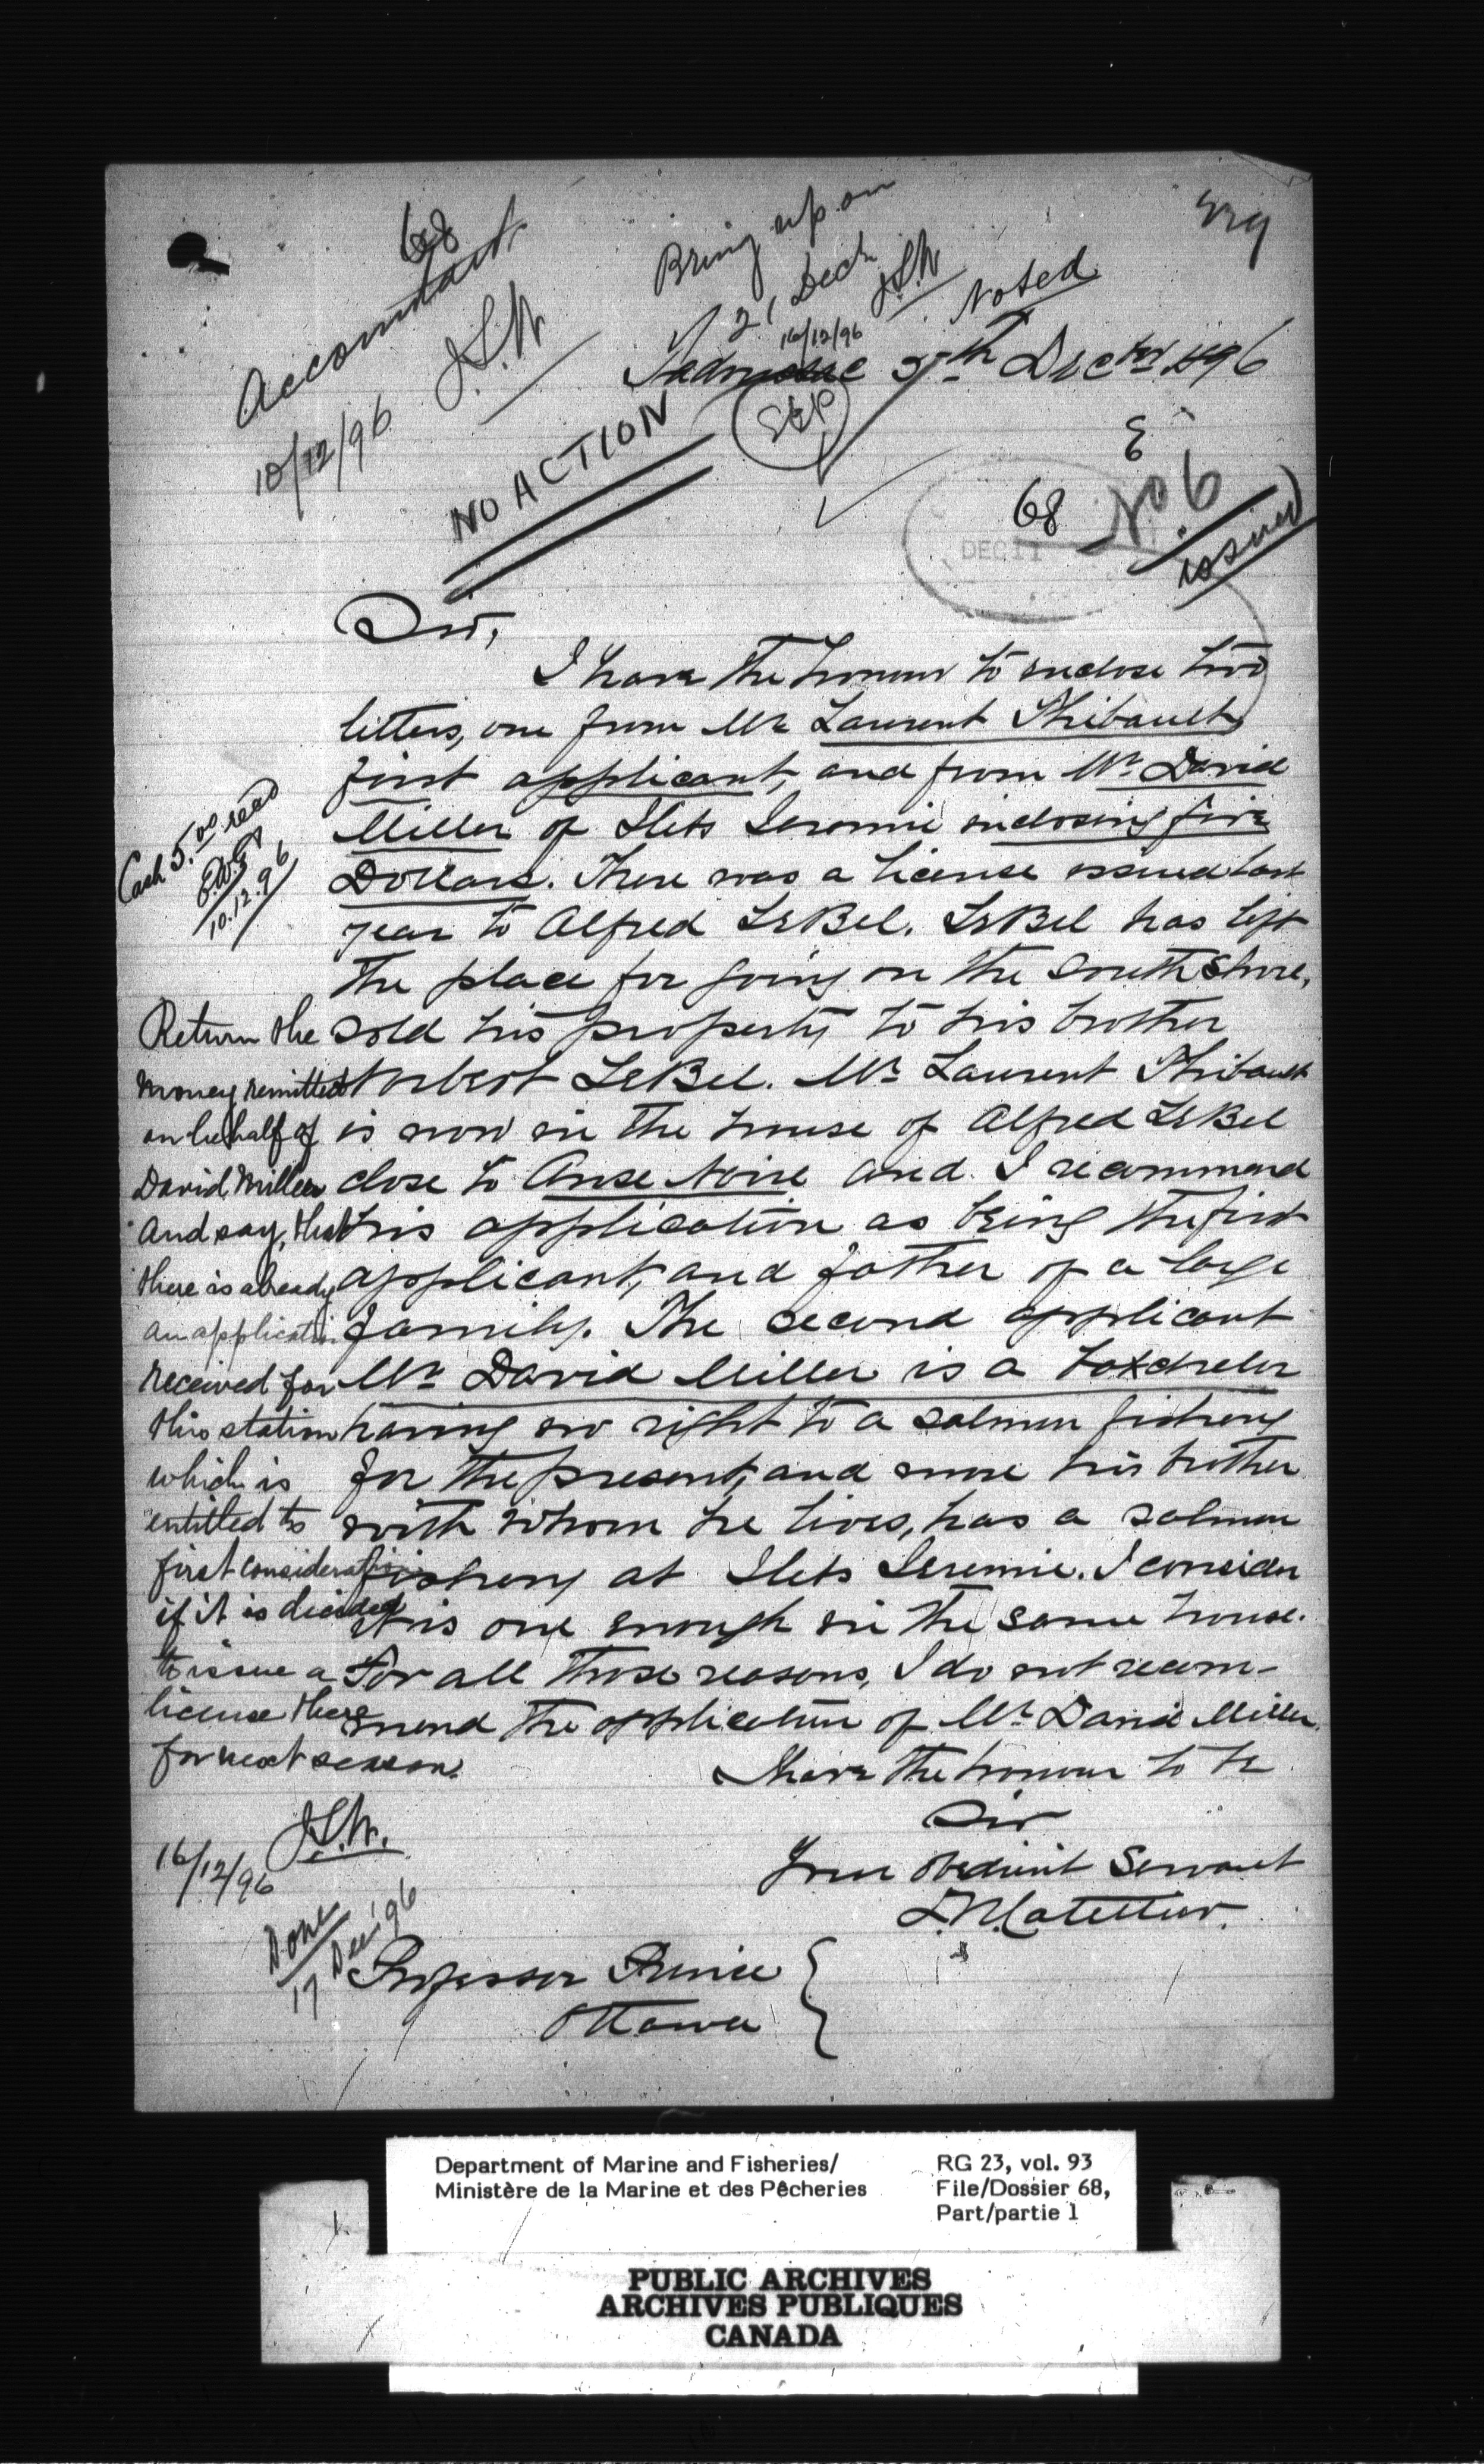 68
Accountant
J.S.W.
10/12/96
Bring up on
21 Dec
J.S.W.
16/12/96
Noted
Tadousac 5th Decbr 1896
NO ACTION
68
No 6
issued
DEC 11
Sir,
I have the honour to enclose two
letters, one from Mr Laurent Thibault
first applicant, and from Mr David
Miller of Ilets Jeremie inclosing five
Dollars. There was a license issued last
year to Alfred LeBel. LeBel has left
the place for going on the South Shore,
sold his property to his brother
Norbert LeBel. Mr Laurent Thibault
is now in the house of Alfred LeBel
close to Anse Noire and I recommend
his application as being the first
applicant, and father of a large
family. The second applicant
Mr David Miller is a batchelor
having no right to a salmon fishery
for the present, and more his brother
with whom he lives, has a salmon
fishery at Ilets Jeremie. I consider
it is one enough in the same house.
For all those reasons, I do not recom-
mend the application of Mr David Miller.
I have the honour to be
Sir
Your obedient Servant
Professor Prince
Ottawa
Cash 5.00 recd
10.12.96
Return the
money remitted
on behalf of
David Miller
and say, that
there is already
an application
received for
this station
which is
entitled to
first consideration
if it is decided
to issue a
license there
for next season.
J.S.W.
16/12/96
Done
17 Dec '96
Department of Marine and Fisheries/
Ministère de la Marine et des Pêcheries
RG 23, vol. 93
File/Dossier 68,
Part/partie 1
PUBLIC ARCHIVES
ARCHIVES PUBLIQUES
CANADA